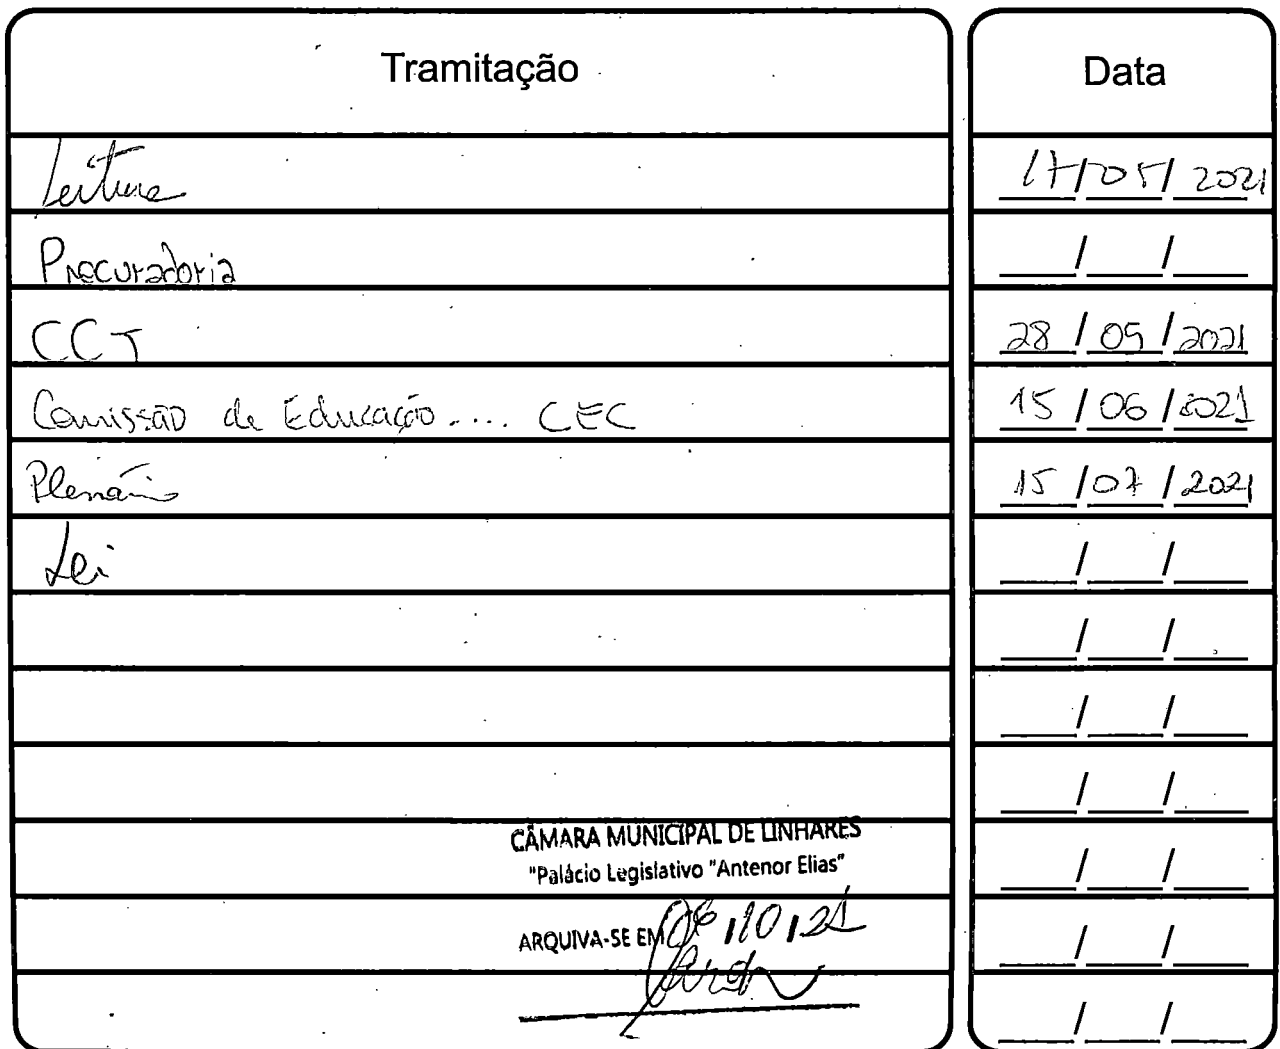 Tramitação Data
Leitura 17/05/2021
Procuradoria __/__/__
CCJ 28/05/2021
Comissão de Educação.... CEC 15/06/2021
Plenário 15/07/2021
Lei __/__/__
__/__/__
__/__/__
__/__/__
CÂMARA MUNICIPAL DE LINHARES
"Palácio Legislativo "Antenor Elias"
__/__/__
ARQUIVA-SE EM /10/21 __/__/__
__/__/__